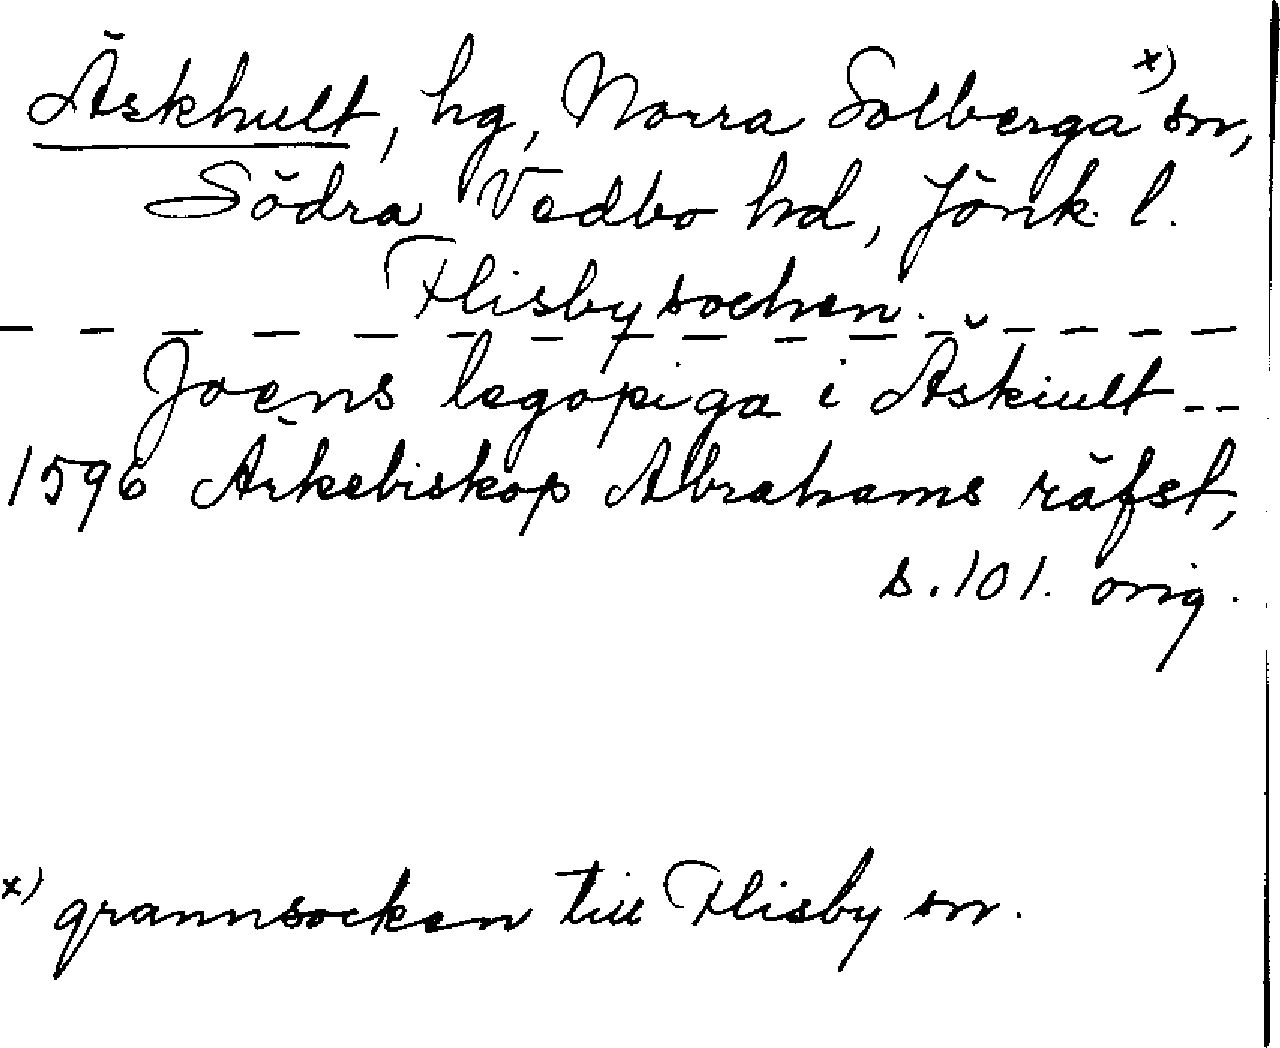 Äskhult, hg, Norra Solberga x) sn,
Södra Vedbo hd, Jönk. l.
Flisby sochen.
Joens legopiga i Äskiult --
1596 Ärkebiskop Abrahams räfst,
s. 101. orig.
x) grannsocken till Flisby sn.